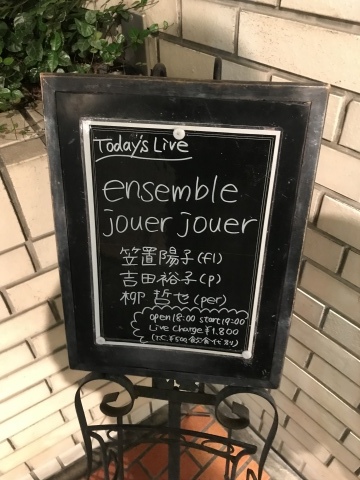 Today's Live
ensemble
jouer jouer
笠置陽子(fl)
吉田裕子(p)
柳 哲也(per)
open 18:00 start 19:00
Live charge ¥1,800
(T.C. ¥500 飲食代別)